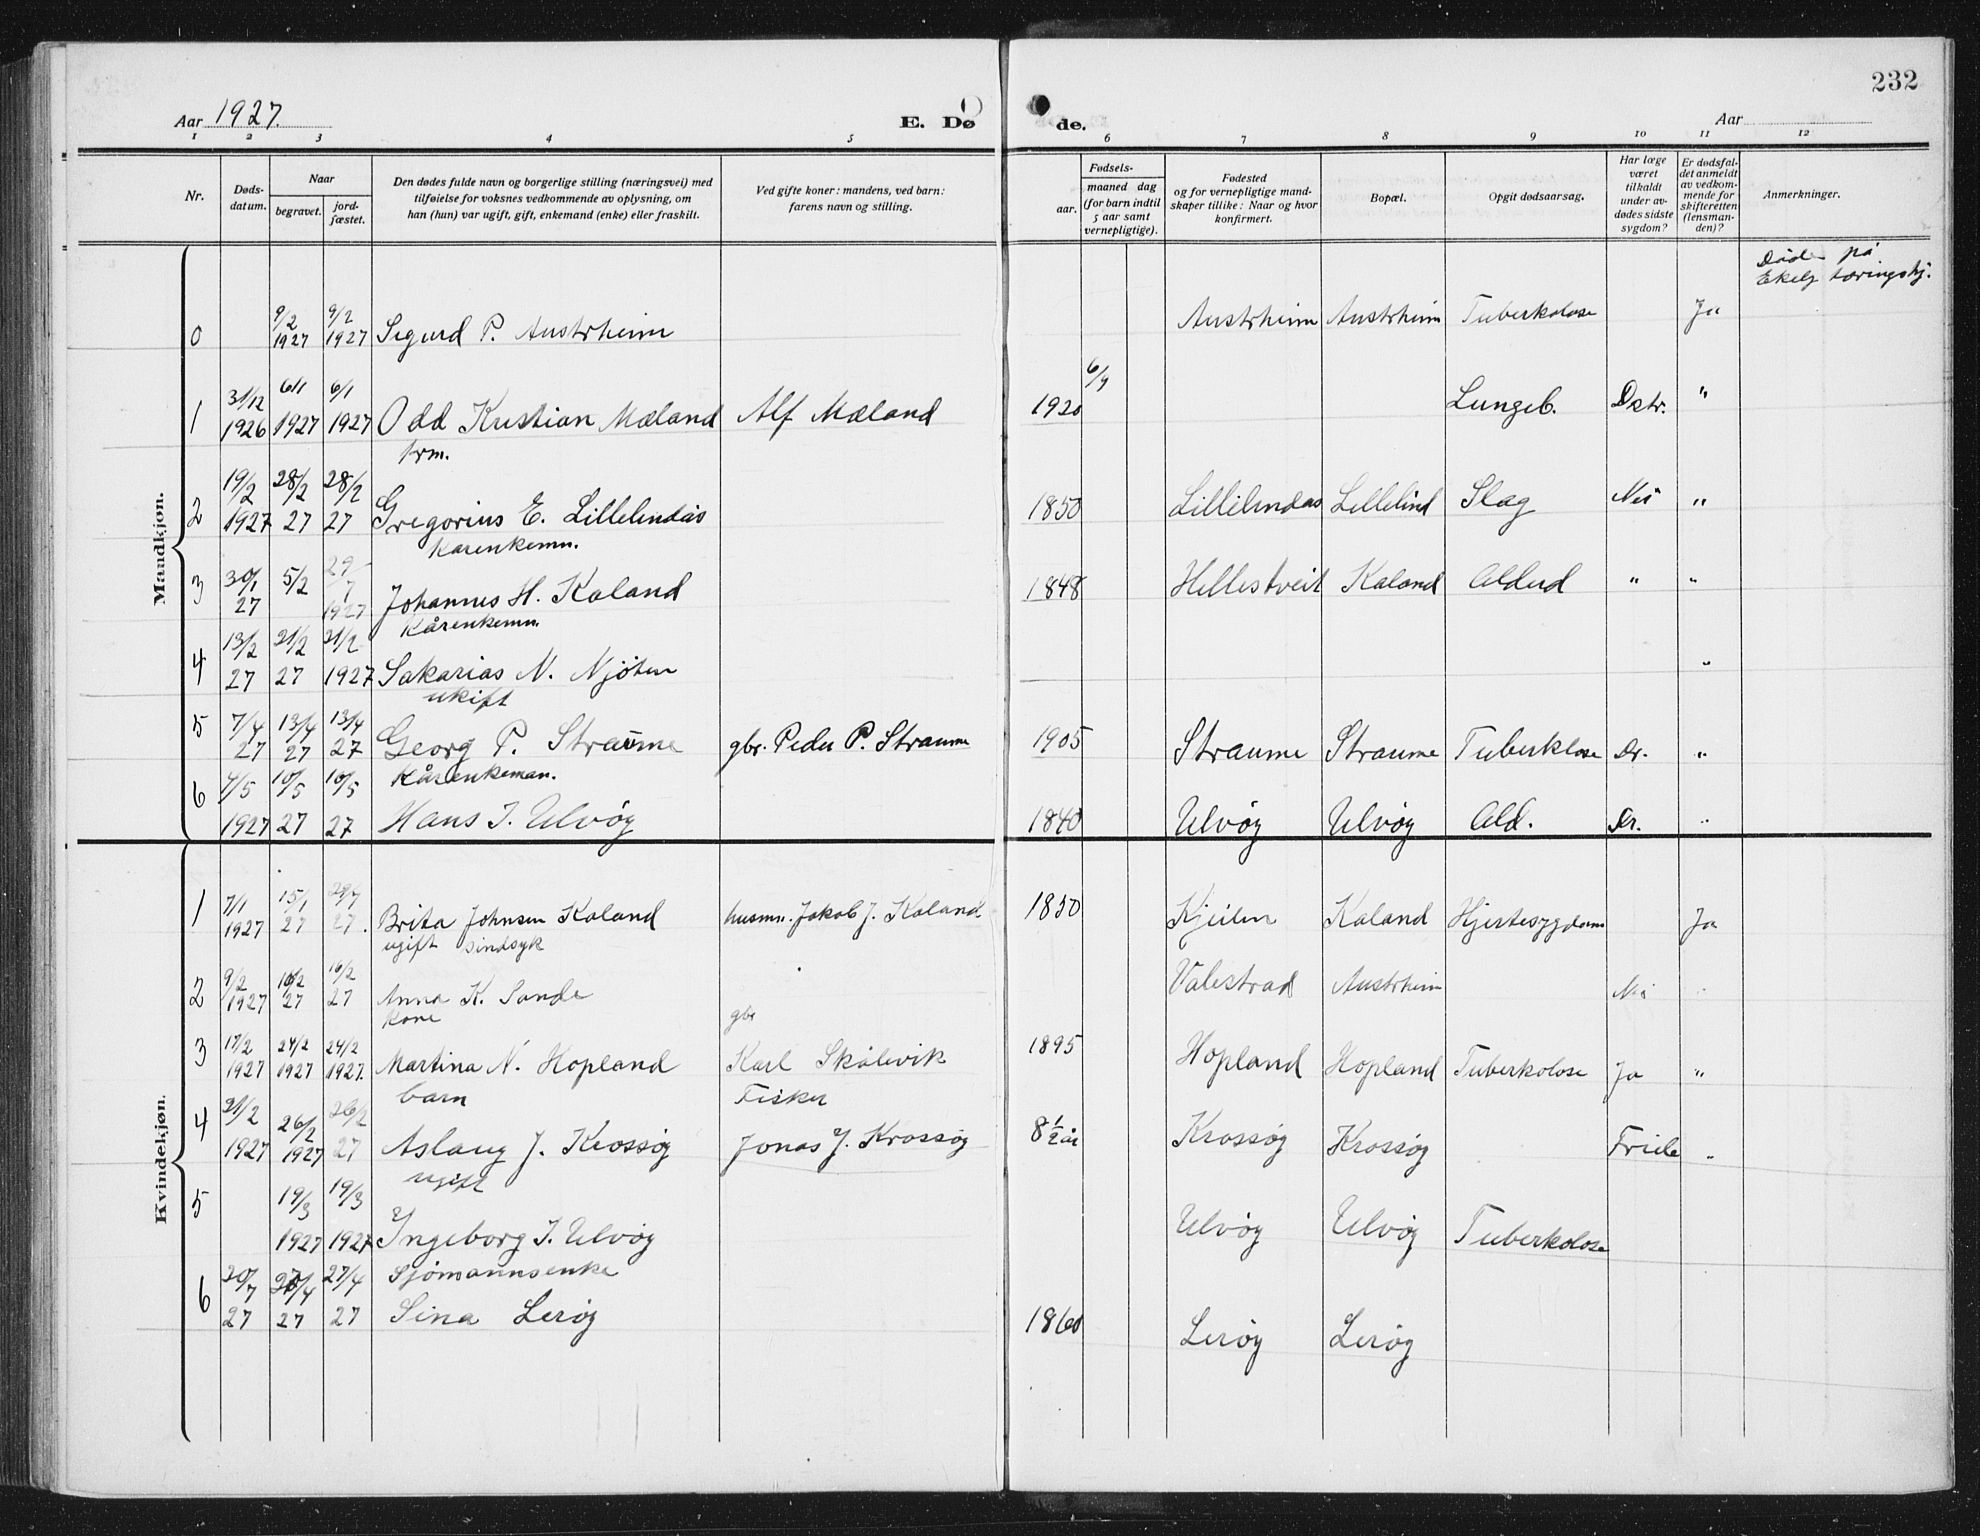 232
Aar 1927.
E. Dø
de.
Aar
1 2 3 4 5 6 7 8 9 10 11 12
Nr.
Døds-
datum.
Naar
begravet.
jord-
fæstet.
Den dødes fulde navn og borgerlige stilling (næringsvei) med
tilføielse for voksnes vedkommende av oplysning, om
han (hun) var ugift, gift, enkemand (enke) eller fraskilt.
Ved gifte koner: mandens, ved barn:
farens navn og stilling.
Fødsels-
aar.
maaned dag
(for barn indtil
5 aar samt
vernepligtige).
Fødested
og for vernepligtige mand-
skaper tillike: Naar og hvor
konfirmert.
Bopæl.
Opgit dødsaarsag.
Har læge
været
tilkaldt
under av-
dødes sidste
sygdom?
Er dødsfal-
det anmeldt
av vedkom-
mende for
skifteretten
(lensman-
den)?
Anmerkninger.
Mandkjøn.
på
Ekely tæringshj.
0 9/2 1927 9/2 1927 Sigurd P. Austrheim Austrheim Austrheim Tuberkolose Ja
1 31/12 1926 6/1 1927 6/1 1927 Odd Kristian Mæland Alf Mæland 1920 6/9 Lungeb. Dstr. "
krm.
2 19/2 1927 28/2 27 28/2 27 Gregorius E. Lillelindås 1850 Lillelindas Lillelind Slag Nei "
Kårenkemn.
3 30/1 27 5/2 29/7 1927 Johannes H. Kaland 1848 Hellestveit Kaland Alderd " "
Kårenkemn.
4 13/2 27 21/2 27 21/2 1927 Sakarias N. Njøten "
ukift
5 7/4 27 13/4 27 13/4 27 Georg P. Straume gbr. Peder P. Straume 1905 Straume Straume Tuberklose Dr. "
Kårenkeman.
6 4/5 1927 10/5 27 10/5 27 Hans J. Ulvøy 1840 Ulvøy Ulvøy Ald. Dr. "
Kvindekjøn.
1 7/1 1927 15/1 27 29/7 27. Brita Johnsen Kaland husmn. Jakob J. Kaland. 1850 Kjeilen Kaland Hjertesygdom Ja
ugift sindsyk
2 9/2 1927 16/2 27 16/2 27 Anna K. Sande Valestrad Austrheim Nei "
kone gbr
3 17/2 1927 24/2 1927 24/2 1927. Martina N. Hopland Karl Skålevik 1895 Hopland Hopland Tuberkolose Ja "
barn Fisker
4 21/2 1927 26/2 1927 26/2 27 Aslaug J. Krossøy Jonas J. Krossøy 8 1/2 år Krossøy Krossøy Friele "
ugift
5 19/3 1927 19/3 1927 Ingeborg J. Ulvøy Ulvøy Ulvøy Tuberkolose
Sjømannsenke
6 20/7 27 27/4 27 27/4 27 Sina Lerøy 1860 Lerøy Lerøy